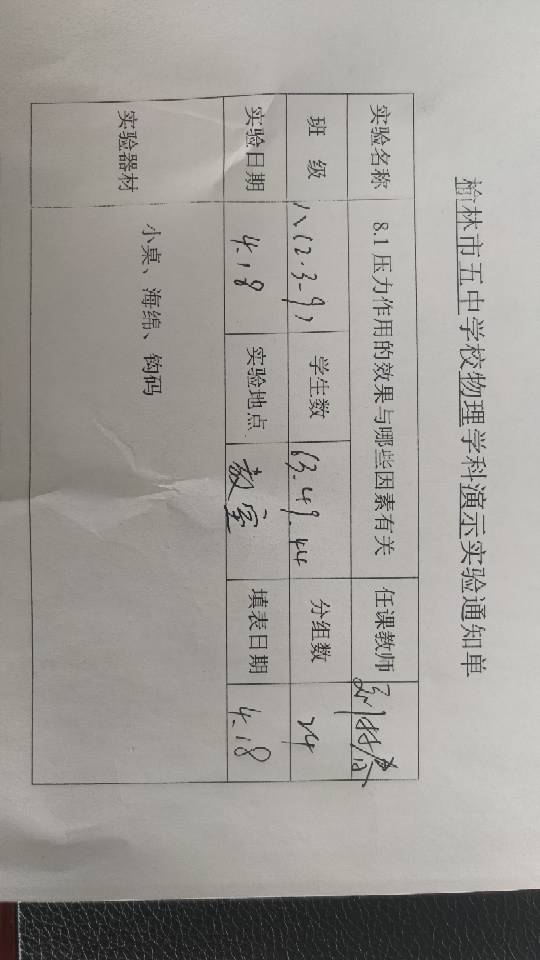 榆林市五中学校物理学科演示实验通知单
实验名称 8.1 压力作用的效果与哪些因素有关 任课教师
班 级 八(2.3-9) 学生数 49.44 分组数 24
实验日期 4.18 实验地点 教室 填表日期 4.18
实验器材 小桌、海绵、钩码